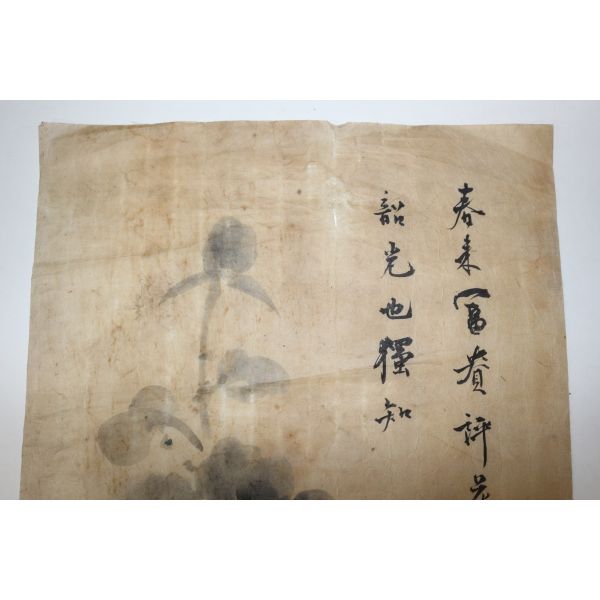 春來富貴評
韶光也獨知